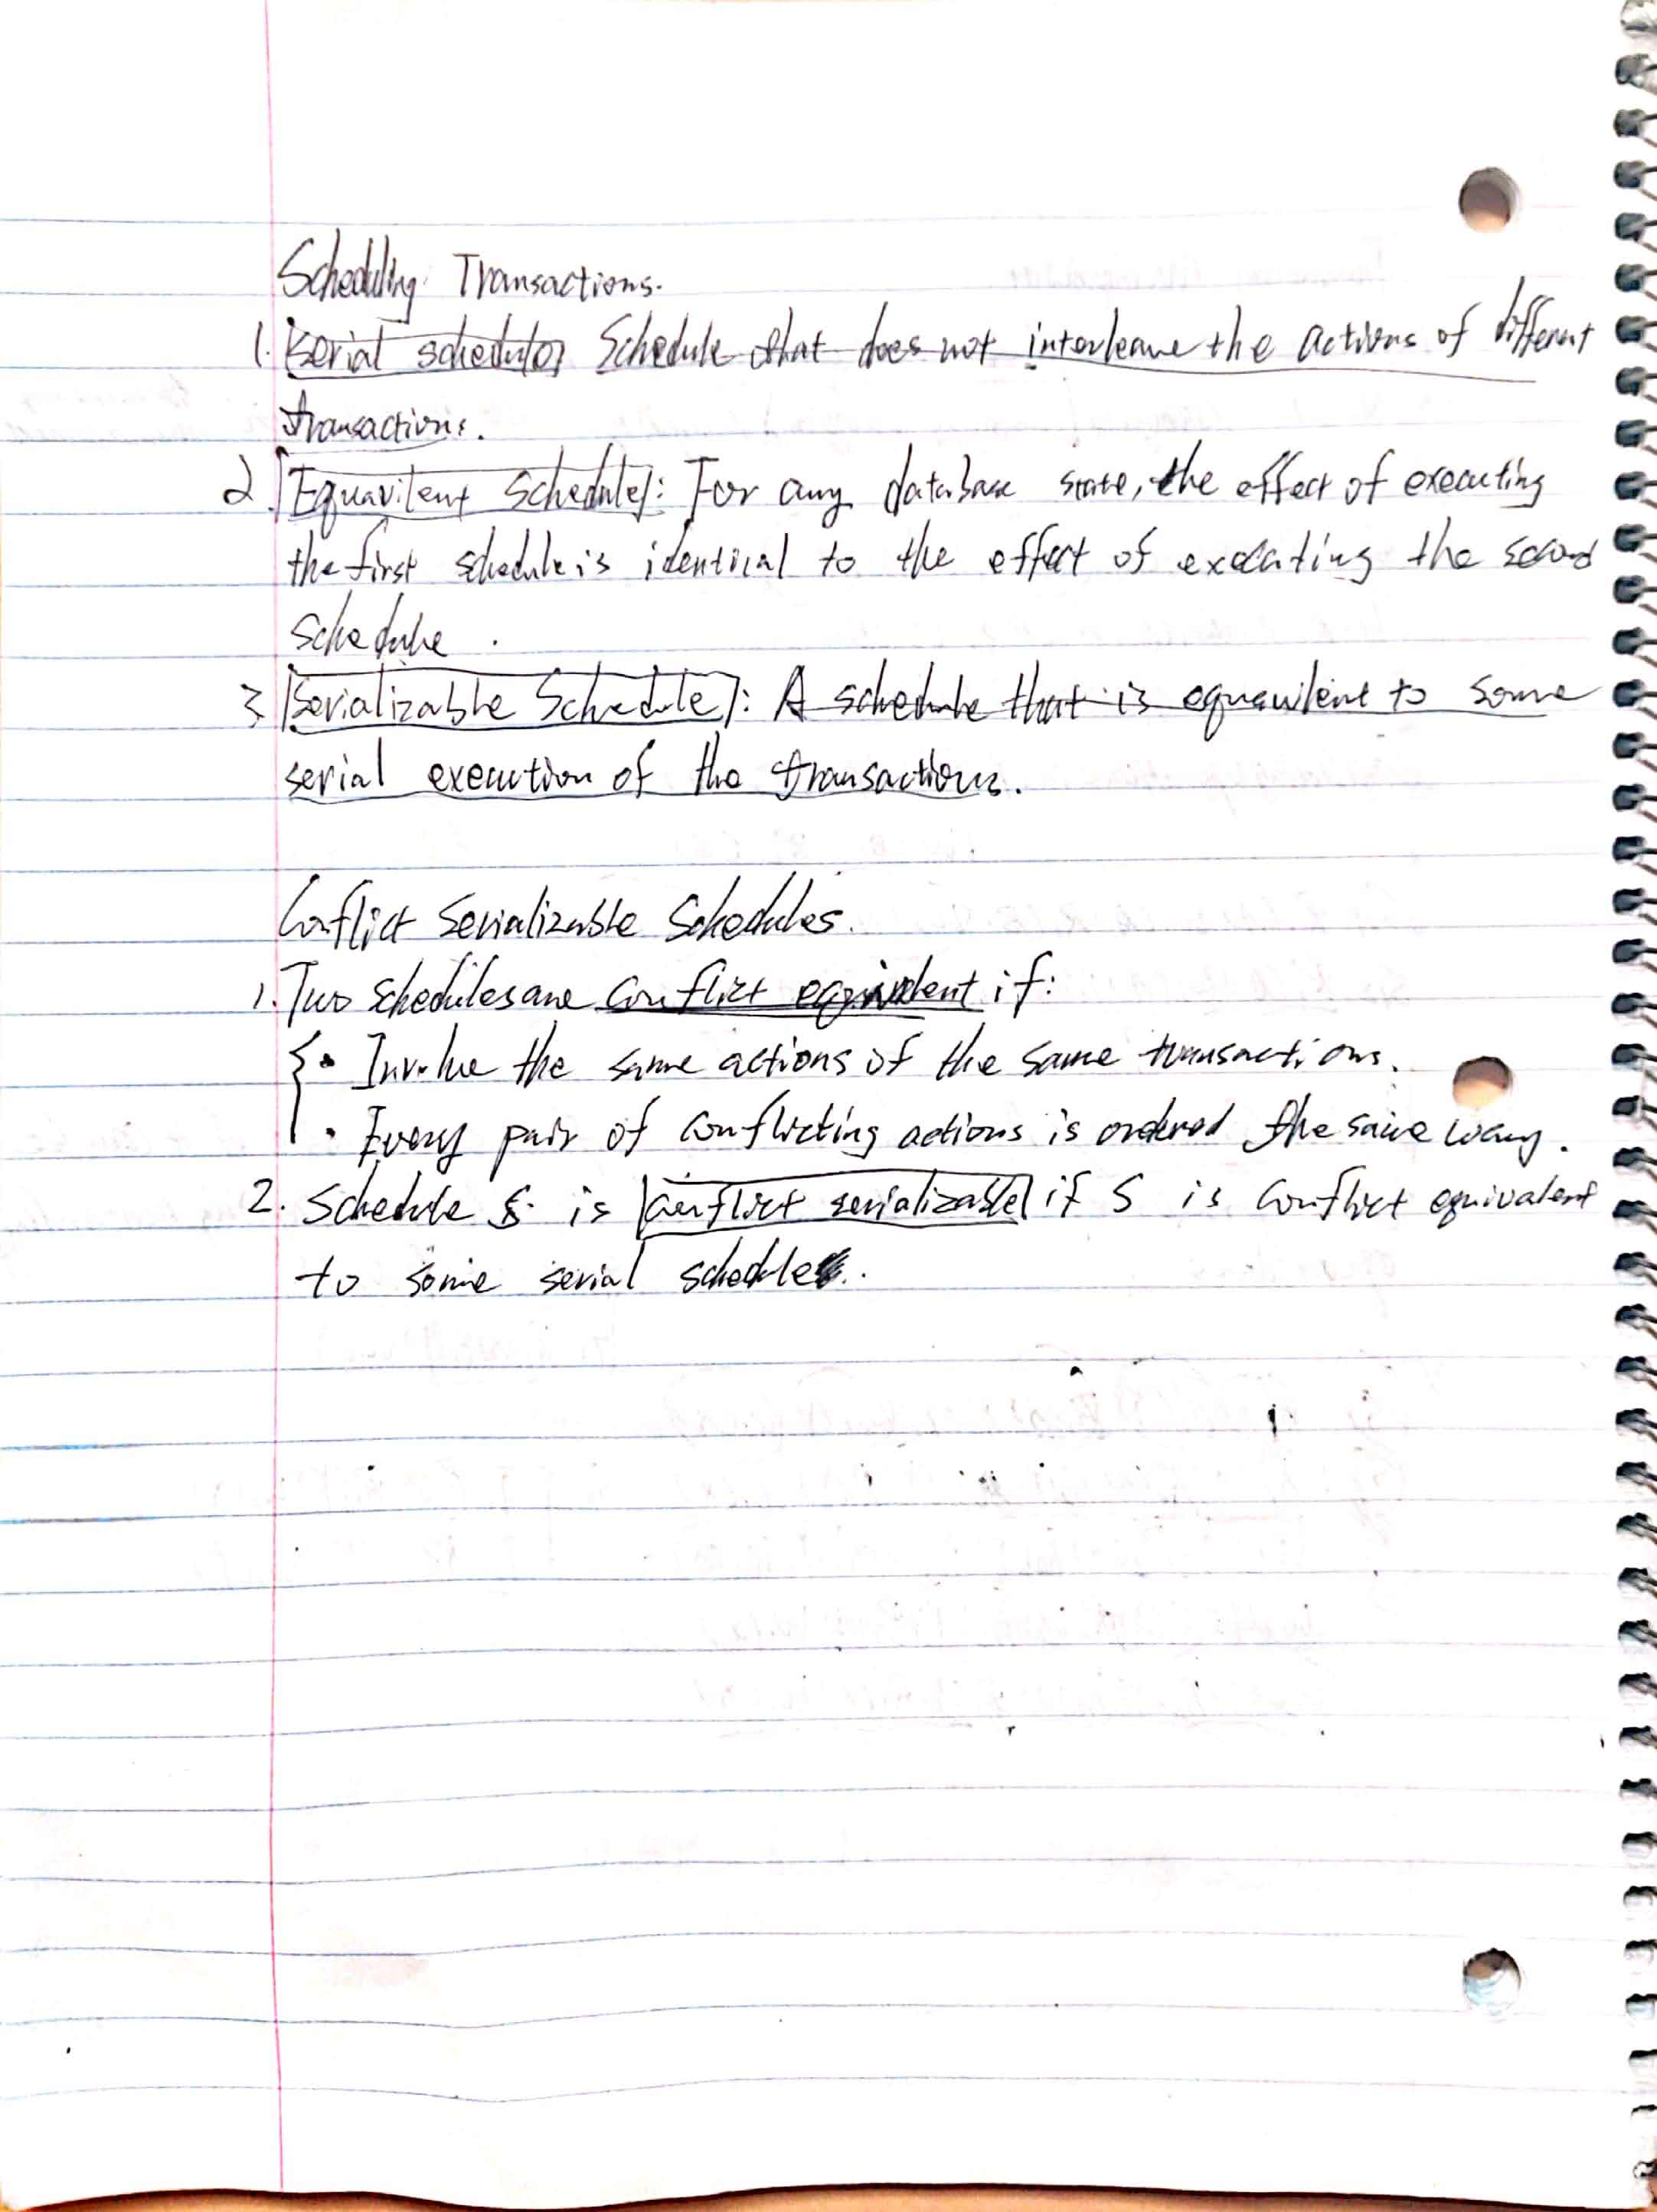 Scheduling Transactions.
1. Serial schedule: Schedule that does not interleave the actions of different
transactions.
2. Equavilent schedule: For any database state, the effect of executing
the first schedule is identical to the effect of executing the second
schedule.
3. Serializable Schedule: A schedule that is equavilent to some
serial execution of the transactions.
Conflict Serializable Schedules.
1. Two schedules are conflict equivalent if:
{ • Involve the same actions of the same transactions.
• Every pair of conflicting actions is ordered the same way.
2. Schedule S is conflict serializable if S is conflict equivalent
to some serial schedule.